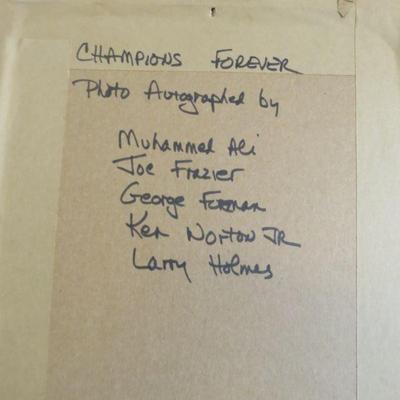 CHAMPIONS FOREVER
Photo Autographed by
Muhammed Ali
Joe Frazier
George Forman
Ken Norton JR
Larry Holmes